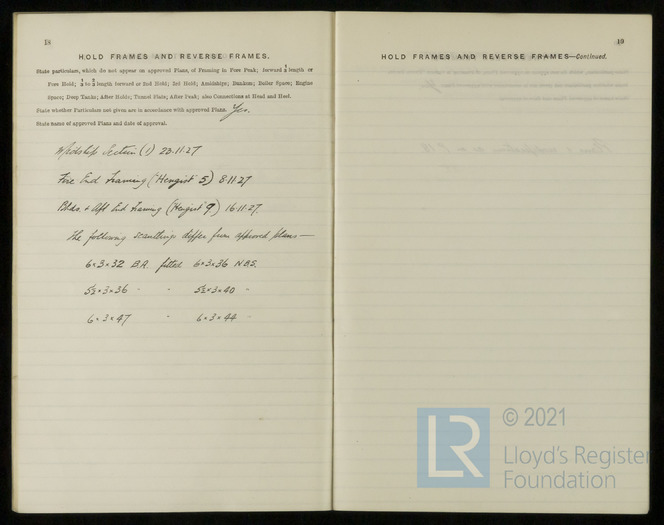 18
HOLD FRAMES AND REVERSE FRAMES.
State particulars, which do not appear on approved Plans, of Framing in Fore Peak; forward 1/5 length or
Fore Hold; 1/5 to 2/5 length forward or 2nd Hold; 3rd Hold; Amidships; Bunkers; Boiler Space; Engine
Space; Deep Tanks; After Holds; Tunnel Flats; After Peak; also Connections at Head and Heel.
State whether Particulars not given are in accordance with approved Plans. Yes.
State name of approved Plans and date of approval.
Midship Section (1) 23.11.27
Fore End Framing ("Hengist" 5) 8.11.27
Blds. & Aft End Framing (Hengist 9) 16.11.27.
The following scantlings differ from approved plans —
6 x 3 x 32 B.A. fitted 6 x 3 x 36 N.B.S.
5½ x 3 x 36 " " 5½ x 3 x 40 "
6 x 3 x 47 " 6 x 3 x 44 "
19
HOLD FRAMES AND REVERSE FRAMES—Continued.
LR
© 2021
Lloyd's Register
Foundation